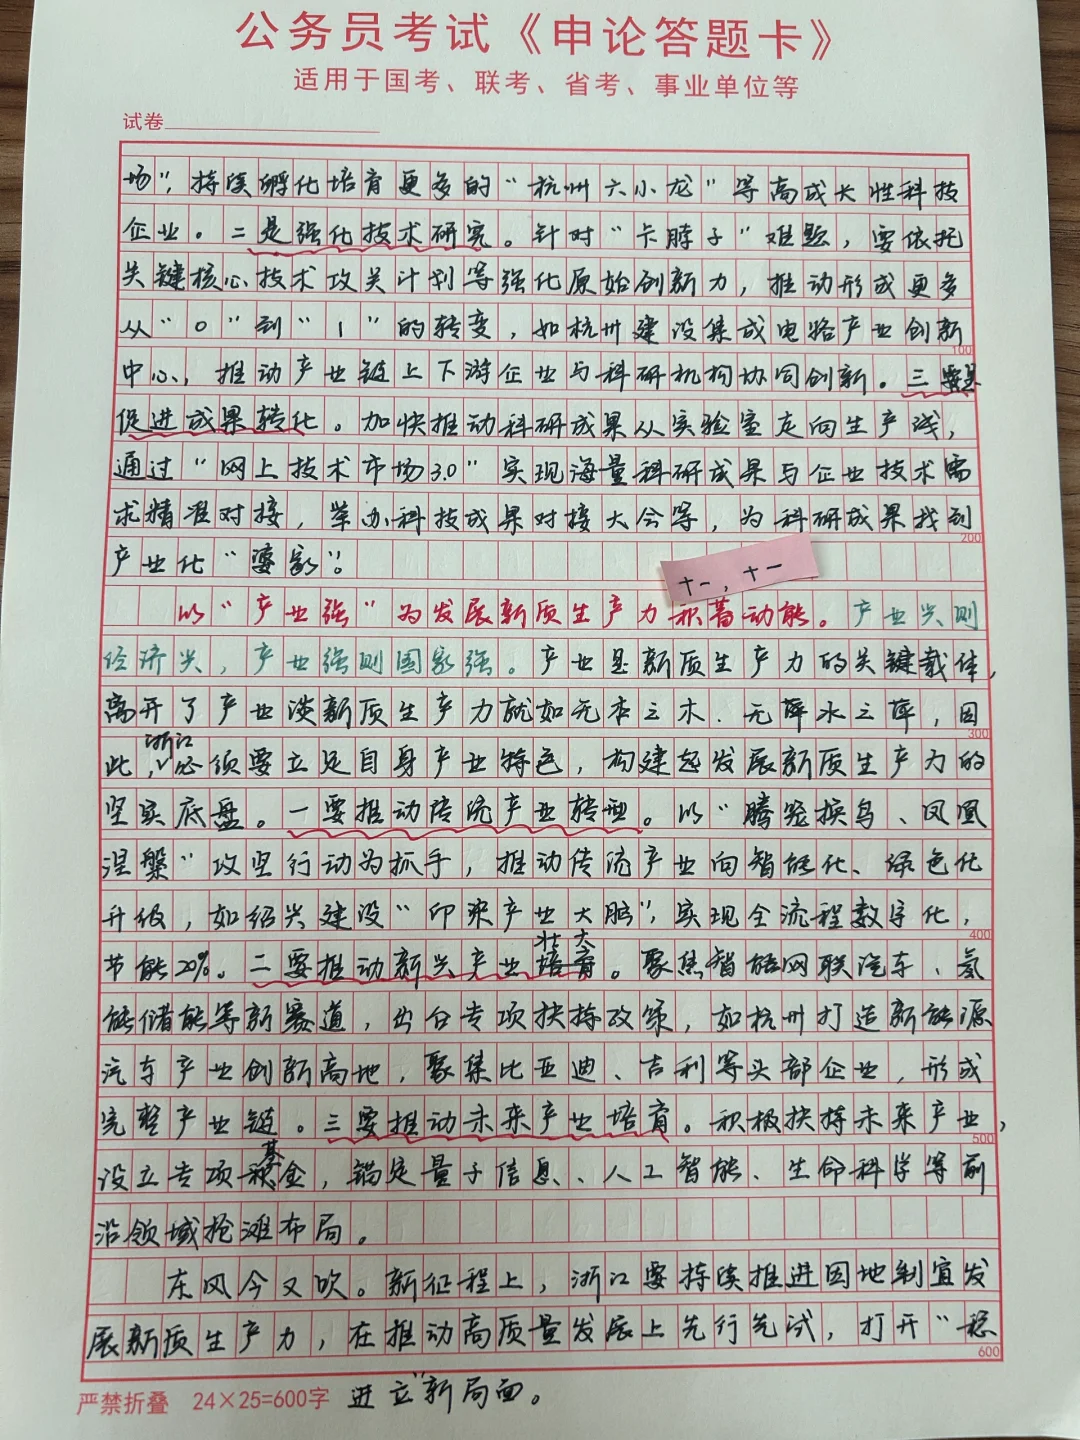 公务员考试《申论答题卡》
适用于国考、联考、省考、事业单位等
试卷
场”，持续孵化培育更多的“杭州六小龙”等高成长性科技
企业。二是强化技术研究。针对“卡脖子”难题，要依托
关键核心技术攻关计划等强化原始创新力，推动形成更多
从“0”到“1”的转变，如杭州建设集成电路产业创新
100
中心，推动产业链上下游企业与科研机构协同创新。三是
促进成果转化。加快推动科研成果从实验室走向生产线，
通过“网上技术市场3.0”实现海量科研成果与企业技术需
求精准对接，举办科技成果对接大会等，为科研成果找到
200
产业化“婆家”。
十一，十一
以“产业强”为发展新质生产力积蓄动能。产业兴则
经济兴，产业强则国家强。产业是新质生产力的关键载体，
离开了产业谈新质生产力就如无本之木、无萍水之萍，因
300
此，浙江必须要立足自身产业特色，构建起发展新质生产力的
坚实底盘。一要推动传统产业转型。以“腾笼换鸟、凤凰
涅槃”攻坚行动为抓手，推动传统产业向智能化、绿色化
升级，如绍兴建设“印染产业大脑”，实现全流程数字化，
400
节能20%。二要推动新兴产业壮大。聚焦智能网联汽车、氢
能储能等新赛道，出台专项扶持政策，如杭州打造新能源
汽车产业创新高地，聚集比亚迪、吉利等头部企业，形成
完整产业链。三要推动未来产业培育。积极扶持未来产业，
500
设立专项基金，锚定量子信息、人工智能、生命科学等前
沿领域抢滩布局。
东风今又吹。新征程上，浙江要持续推进因地制宜发
展新质生产力，在推动高质量发展上先行先试，打开“稳
600
严禁折叠 24×25=600字 进立”新局面。